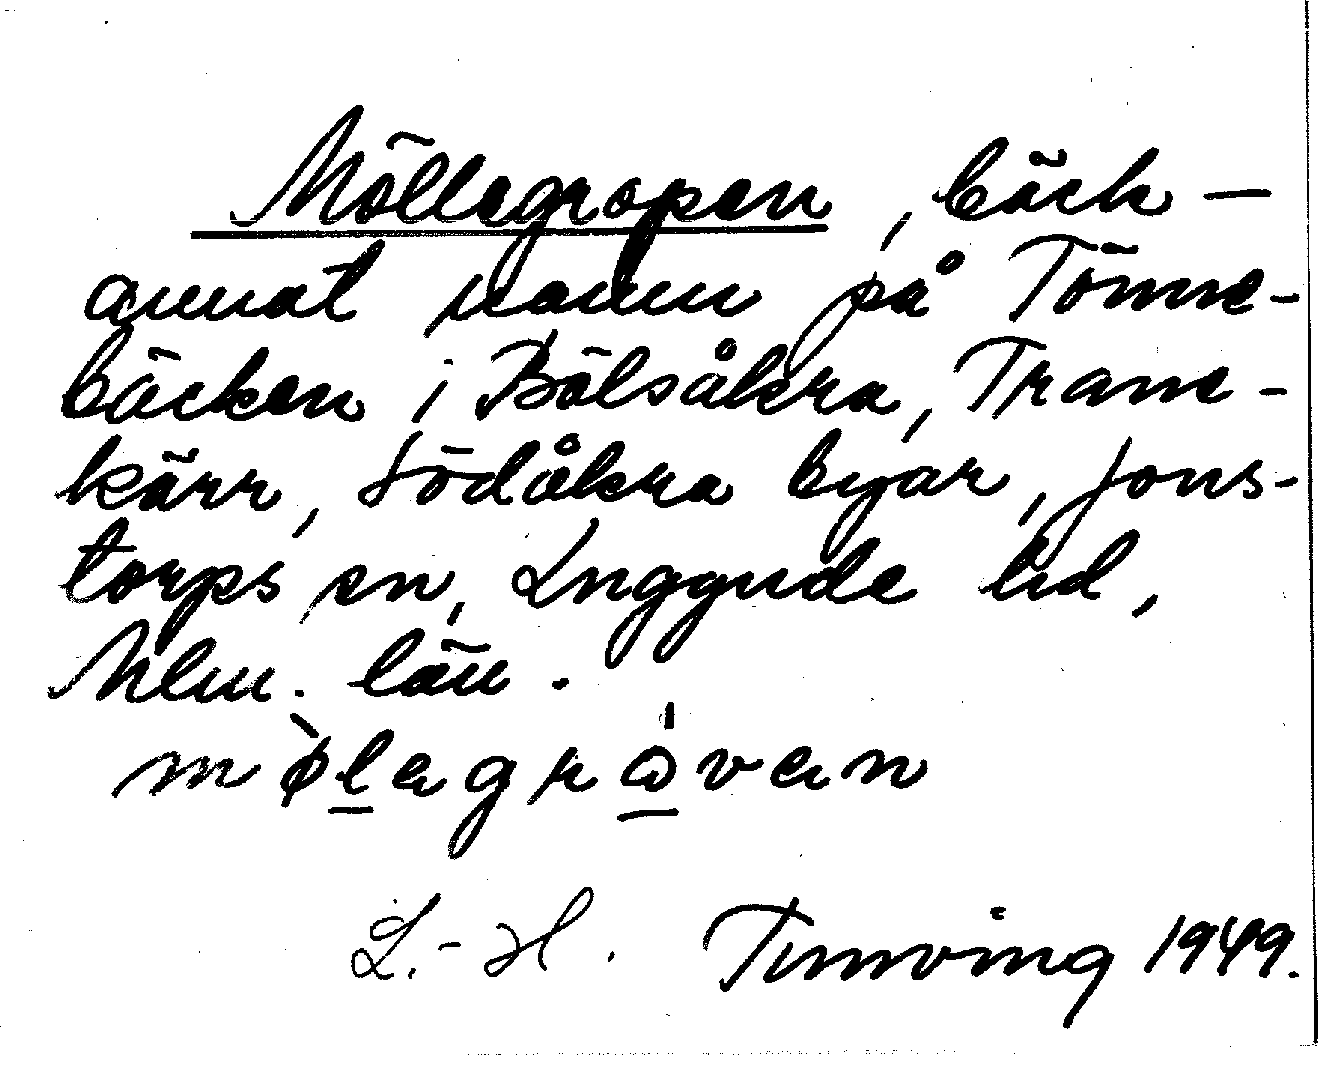 Möllegropen, bäck —
annat namn på Tönne-
bäcken i Bölsåkra, Trane-
kärr, Södåkra byar, Jons-
torps sn, Luggude hd,
Mlm. län.
mø̀lagrávan
L.-H. Tunving 1949.